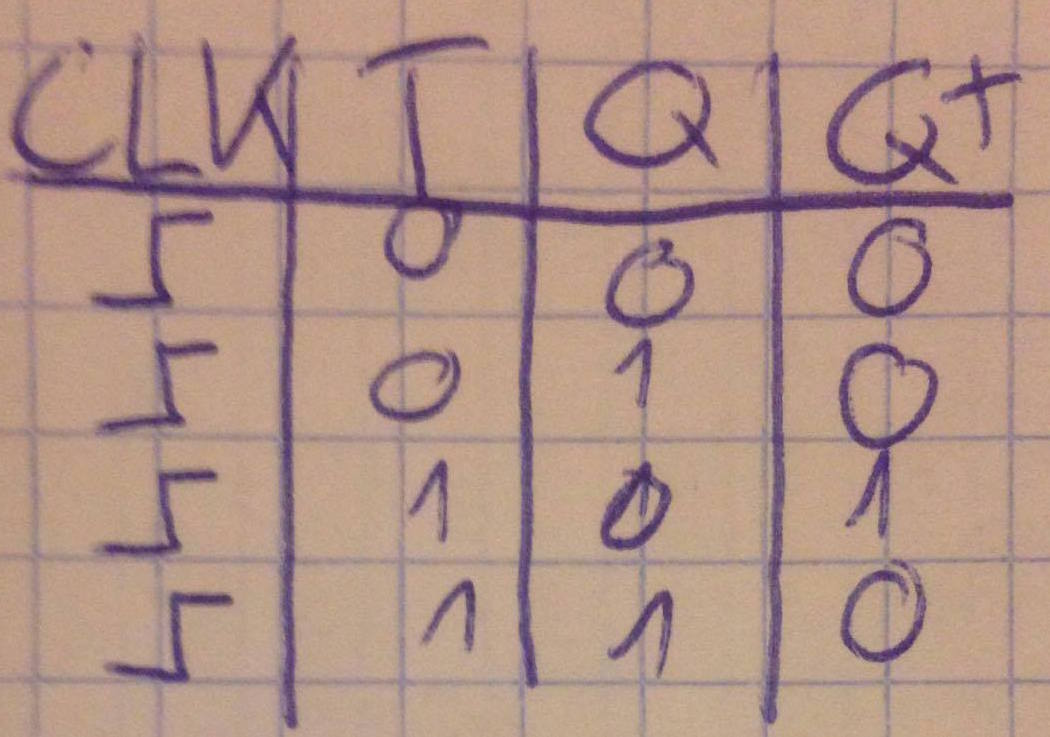 CLK T Q Q+
0 0 0
0 1 0
1 0 1
1 1 0